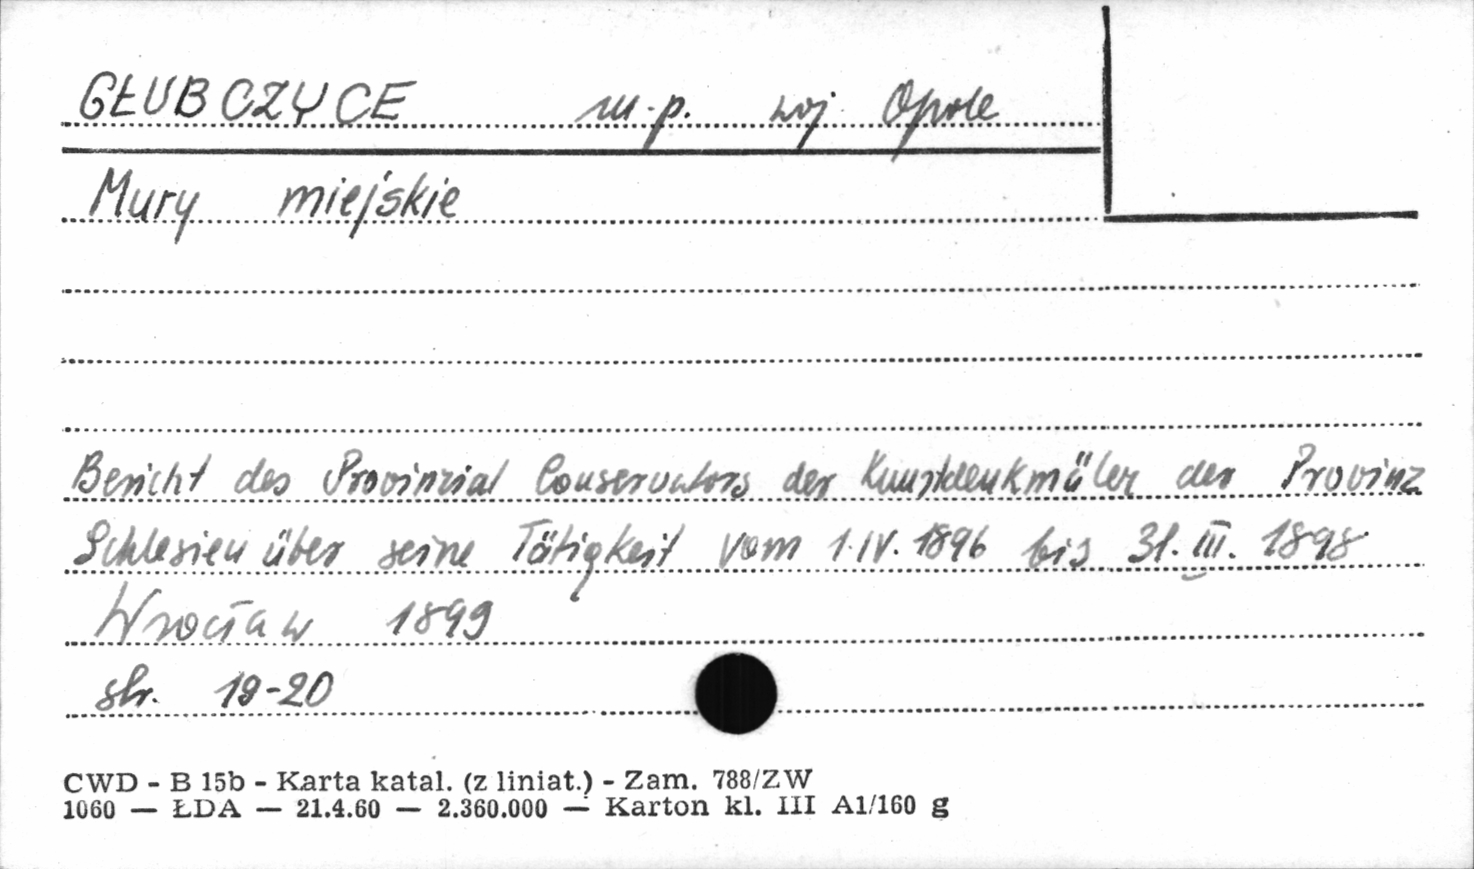 GŁUBCZYCE m.p. woj. Opole
Mury miejskie
Bericht des Provinzial Conservators der Kunstdenkmäler der Provinz
Schlesien über seine Tätigkeit vom 1.IV.1896 bis 31.III.1898
Wrocław 1899
str. 19-20
CWD - B 15b - Karta katal. (z liniat.) - Zam. 788/ZW
1060 — ŁDA — 21.4.60 — 2.360.000 — Karton kl. III A1/160 g